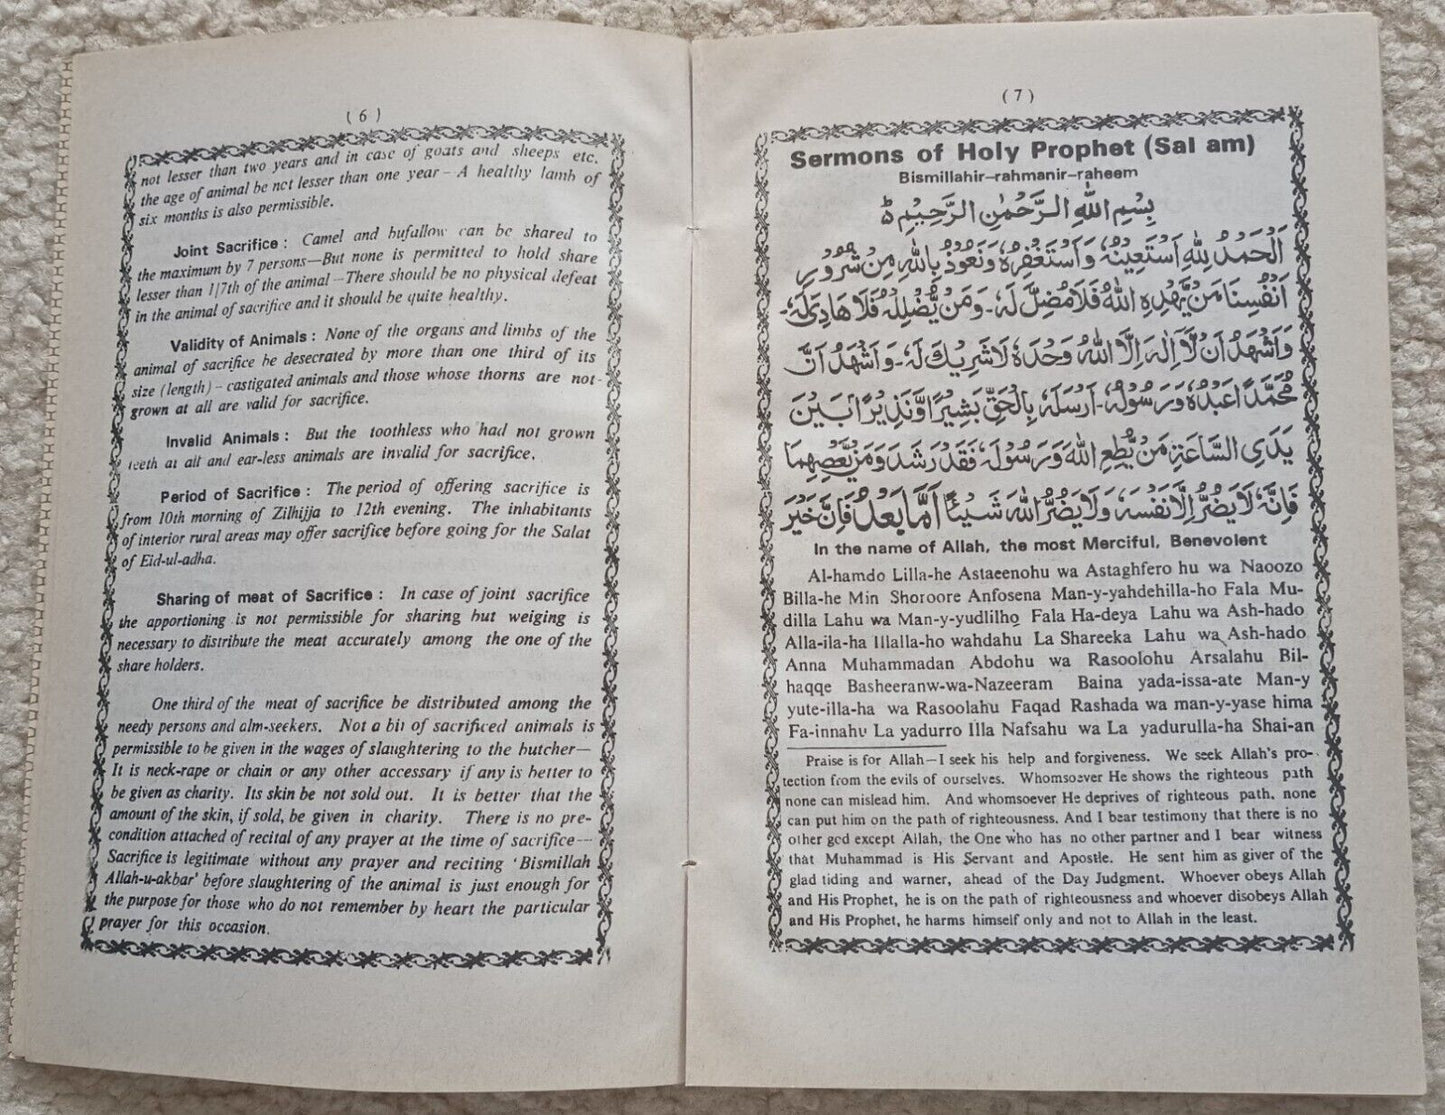 ( 6 )
not lesser than two years and in case of goats and sheeps etc.
the age of animal be nct lesser than one year – A healthy lamb of
six months is also permissible.
Joint Sacrifice : Camel and bufallow can be shared to
the maximum by 7 persons—But none is permitted to hold share
lesser than 1/7th of the animal—There should be no physical defeat
in the animal of sacrifice and it should be quite healthy.
Validity of Animals : None of the organs and limbs of the
animal of sacrifice be desecrated by more than one third of its
size (length) – castigated animals and those whose thorns are not-
grown at all are valid for sacrifice.
Invalid Animals : But the toothless who had not grown
teeth at all and ear-less animals are invalid for sacrifice.
Period of Sacrifice : The period of offering sacrifice is
from 10th morning of Zilhijja to 12th evening. The inhabitants
of interior rural areas may offer sacrifice before going for the Salat
of Eid-ul-adha.
Sharing of meat of Sacrifice : In case of joint sacrifice
the apportioning is not permissible for sharing but weiging is
necessary to distribute the meat accurately among the one of the
share holders.
One third of the meat of sacrifice be distributed among the
needy persons and alm-seekers. Not a bit of sacrificed animals is
permissible to be given in the wages of slaughtering to the butcher—
It is neck-rape or chain or any other accessary if any is better to
be given as charity. Its skin be not sold out. It is better that the
amount of the skin, if sold, be given in charity. There is no pre-
condition attached of recital of any prayer at the time of sacrifice—
Sacrifice is legitimate without any prayer and reciting ‘Bismillah
Allah-u-akbar’ before slaughtering of the animal is just enough for
the purpose for those who do not remember by heart the particular
prayer for this occasion.
( 7 )
Sermons of Holy Prophet (Sal am)
Bismillahir–rahmanir–raheem
بِسْمِ اللهِ الرَّحْمٰنِ الرَّحِيْمِ ط
اَلْحَمْدُ لِلّٰهِ اَسْتَعِيْنُهٗ وَاَسْتَغْفِرُهٗ وَنَعُوْذُ بِاللهِ مِنْ شُرُوْرِ
اَنْفُسِنَا مَنْ يَّهْدِهِ اللهُ فَلَا مُضِلَّ لَهٗ ۔ وَمَنْ يُّضْلِلْهُ فَلَا هَادِىَ لَهٗ ۔
وَاَشْهَدُ اَنْ لَّا اِلٰهَ اِلَّا اللهُ وَحْدَهٗ لَا شَرِيْكَ لَهٗ ۔ وَاَشْهَدُ اَنَّ
مُحَمَّدًا عَبْدُهٗ وَرَسُوْلُهٗ ۔ اَرْسَلَهٗ بِالْحَقِّ بَشِيْرًا وَّنَذِيْرًا بَيْنَ
يَدَىِ السَّاعَةِ مَنْ يُّطِعِ اللهَ وَرَسُوْلَهٗ فَقَدْ رَشَدَ وَمَنْ يَّعْصِهِمَا
فَاِنَّهٗ لَا يَضُرُّ اِلَّا نَفْسَهٗ وَلَا يَضُرُّ اللهَ شَيْئًا اَمَّا بَعْدُ فَاِنَّ خَيْرَ
In the name of Allah, the most Merciful, Benevolent
Al-hamdo Lilla-he Astaeenohu wa Astaghfero hu wa Naoozo
Billa-he Min Shoroore Anfosena Man-y-yahdehilla-ho Fala Mu-
dilla Lahu wa Man-y-yudlilho Fala Ha-deya Lahu wa Ash-hado
Alla-ila-ha Illalla-ho wahdahu La Shareeka Lahu wa Ash-hado
Anna Muhammadan Abdohu wa Rasoolohu Arsalahu Bil-
haqqe Basheeranw-wa-Nazeeram Baina yada-issa-ate Man-y
yute-illa-ha wa Rasoolahu Faqad Rashada wa man-y-yase hima
Fa-innahu La yadurro Illa Nafsahu wa La yadurulla-ha Shai-an
Praise is for Allah—I seek his help and forgiveness. We seek Allah's pro-
tection from the evils of ourselves. Whomsoever He shows the righteous path
none can mislead him. And whomsoever He deprives of righteous path, none
can put him on the path of righteousness. And I bear testimony that there is no
other gcd except Allah, the One who has no other partner and I bear witness
that Muhammad is His Servant and Apostle. He sent him as giver of the
glad tiding and warner, ahead of the Day Judgment. Whoever obeys Allah
and His Prophet, he is on the path of righteousness and whoever disobeys Allah
and His Prophet, he harms himself only and not to Allah in the least.